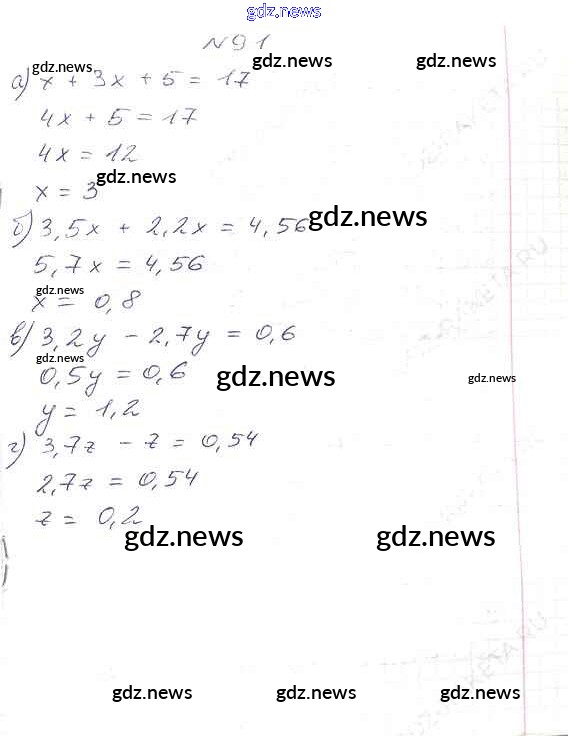 gdz.news
№91
gdz.news gdz.news gdz.news
а) x + 3x + 5 = 17
4x + 5 = 17
4x = 12
gdz.news
x = 3
gdz.news
б) 3,5x + 2,2x = 4,56
5,7x = 4,56
gdz.news
x = 0,8
в) 3,2y - 2,7y = 0,6
gdz.news
0,5y = 0,6
gdz.news gdz.news
y = 1,2
г) 3,7z - z = 0,54
2,7z = 0,54
z = 0,2
gdz.news gdz.news
gdz.news gdz.news gdz.news